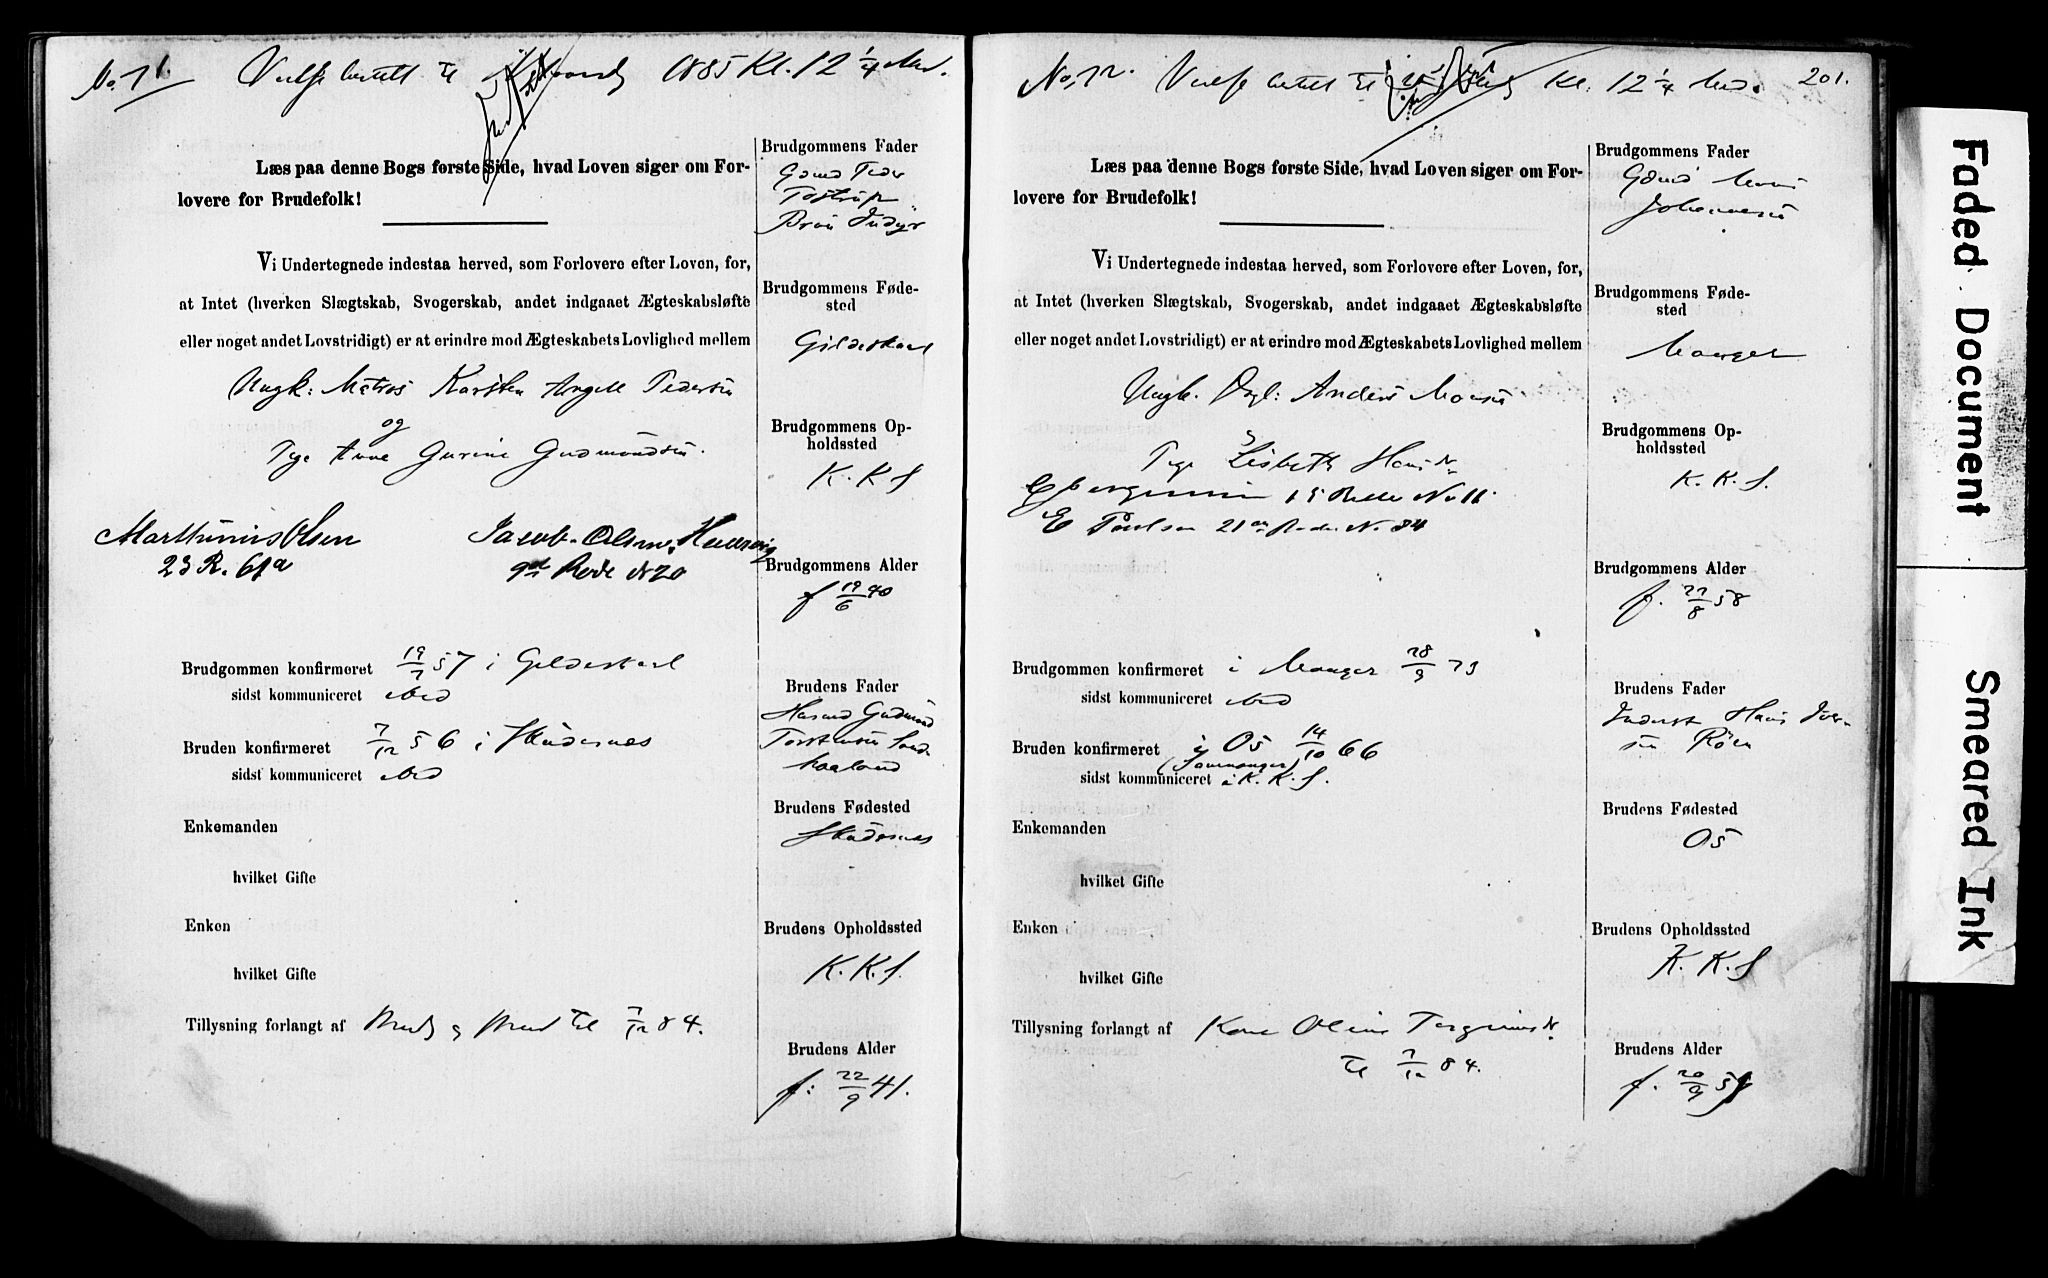 No. 71. Vielse bestilt til 1885 Kl. 12 1/4 Md.
Læs paa denne Bogs første Side, hvad Loven siger om For-
lovere for Brudefolk!
Vi Undertegnede indestaa herved, som Forlovere efter Loven, for,
at Intet (hverken Slægtskab, Svogerskab, andet indgaaet Ægteskabsløfte
eller noget andet Lovstridigt) er at erindre mod Ægteskabets Lovlighed mellem
Ungk: Matros Karsten Angell Pedersen
og
Pige Anne Gurine Gudmundsen.
Marthinius Olsen
23 R. 61a
Jacob Olsen
9de Rode N 20
Brudgommen konfirmeret 19/7 57 i Gildeskaal
sidst kommuniceret
Bruden konfirmeret 7/12 56 i Skudesnes
sidst kommuniceret
Enkemanden
hvilket Gifte
Enken
hvilket Gifte
Tillysning forlangt af Brudg og Brud til 7/12 84.
Brudgommens Fader
Gaard Peder
Tostrup
Brudgommens Føde-
sted
Gildeskaal
Brudgommens Op-
holdssted
K. K. S
Brudgommens Alder
f 19/6 40
Brudens Fader
Husmd Gudmund
Torstensen
Brudens Fødested
Skudesnes
Brudens Opholdssted
K. K. S.
Brudens Alder
f: 22/9 41.
No. 72. Vielse bestilt til Kl. 12 1/4 Md.
201.
Læs paa denne Bogs første Side, hvad Loven siger om For-
lovere for Brudefolk!
Vi Undertegnede indestaa herved, som Forlovere efter Loven, for,
at Intet (hverken Slægtskab, Svogerskab, andet indgaaet Ægteskabsløfte
eller noget andet Lovstridigt) er at erindre mod Ægteskabets Lovlighed mellem
Ungk. Anders Monsen
Pige Lisbeth Hansdr
15 Rode No 11.
E Poulsen 21de Rode No 84
Brudgommen konfirmeret i Manger 28/9 73
sidst kommuniceret
Bruden konfirmeret i Os 14/10 66
sidst kommuniceret i K. K. S.
Enkemanden
hvilket Gifte
Enken
hvilket Gifte
Tillysning forlangt af Kone Oline
til 7/12 84.
Brudgommens Fader
Gbmd Mons
Johannesen
Brudgommens Føde-
sted
Manger
Brudgommens Op-
holdssted
K. K. S.
Brudgommens Alder
f. 22/8 58
Brudens Fader
Inderst Hans Iver-
sen Røen
Brudens Fødested
Os
Brudens Opholdssted
K. K. S
Brudens Alder
f. 20/9 51
Faded Document
Smeared Ink